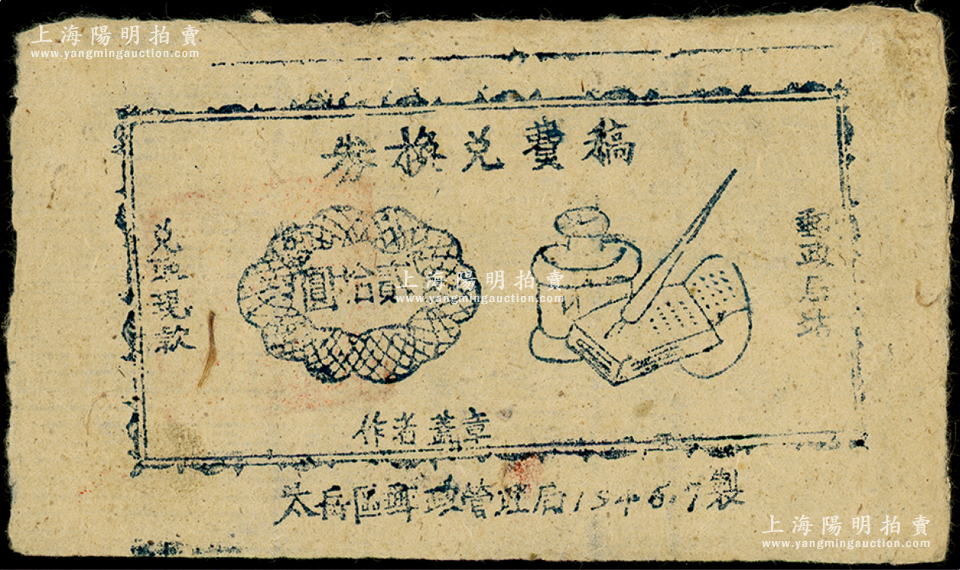 上海陽明拍賣
www.yangmingauction.com
稿費兌換券
郵政局站
貳拾圓
上海陽明拍賣
www.yangmingauction.com
現款
作者蓋章
太岳區郵政管理局1946.7製
上海陽明拍賣
www.yangmingauction.com